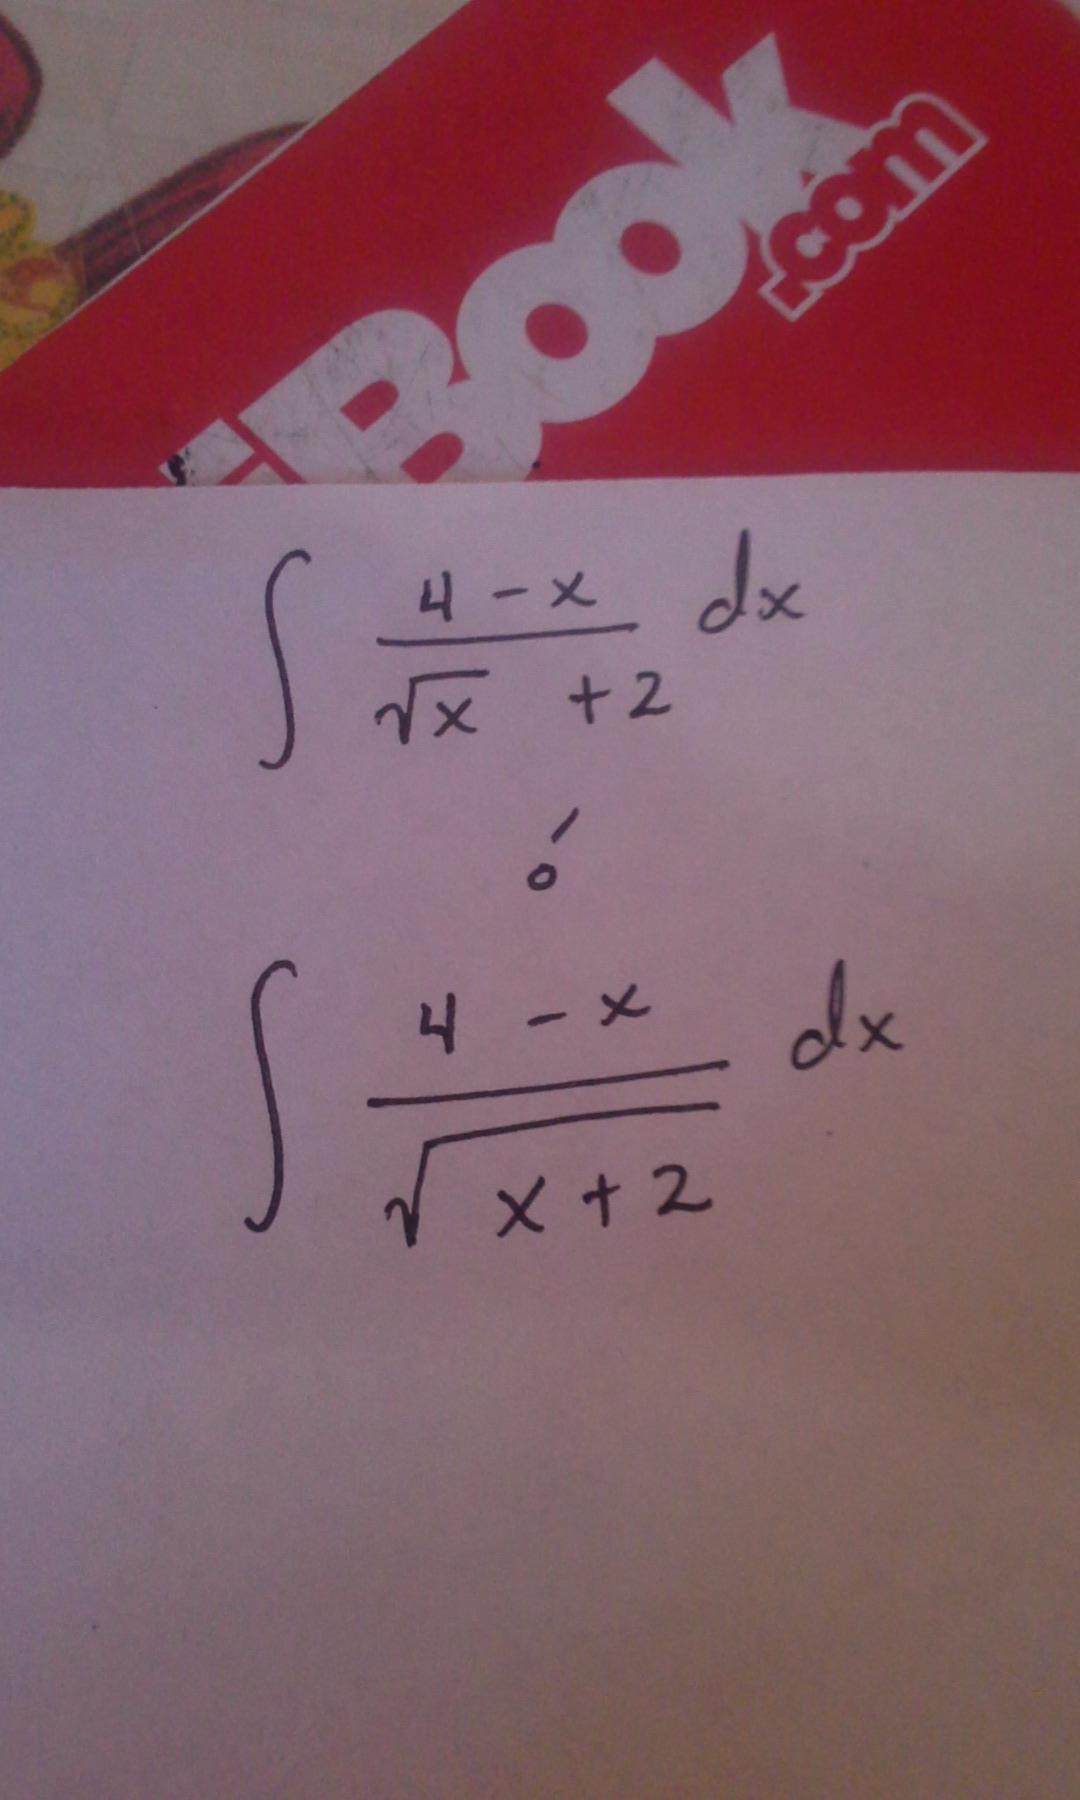 iBook
.com
∫ (4 - x)/(√x + 2) dx
ó
∫ (4 - x)/√(x + 2) dx